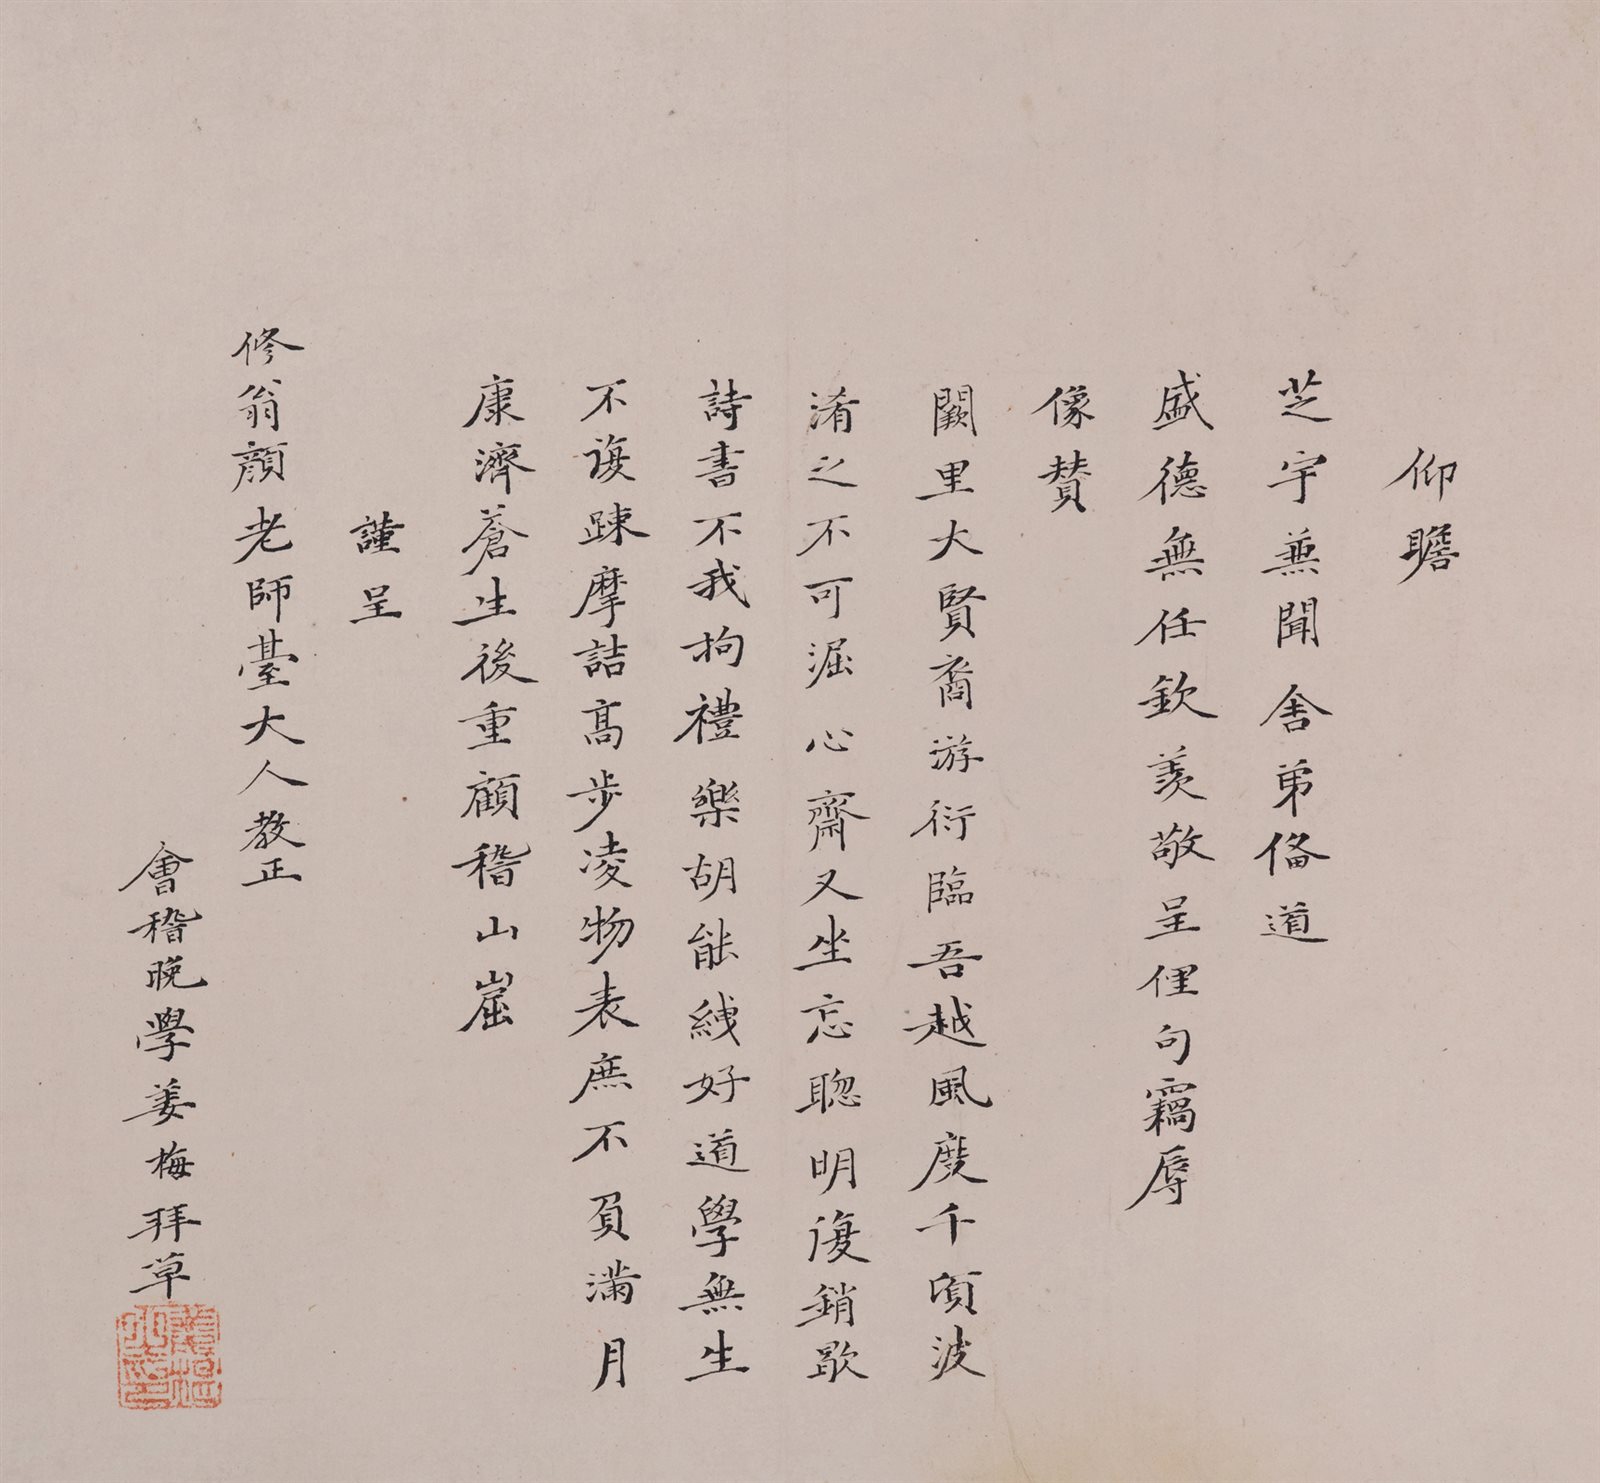 仰瞻
芝宇兼聞舍弟俻道
盛德無任欽羨敬呈俚句竊辱
像賛
闕里大賢裔游衍臨吾越風度千頃波
淆之不可淈心齋又坐忘聰明復銷歇
詩書不我拘禮樂胡能綫好道學無生
不復踈摩詰髙步凌物表庶不負滿月
康濟蒼生後重顧稽山崫
謹呈
修翁顔老師臺大人教正
會稽晚學姜梅拜草